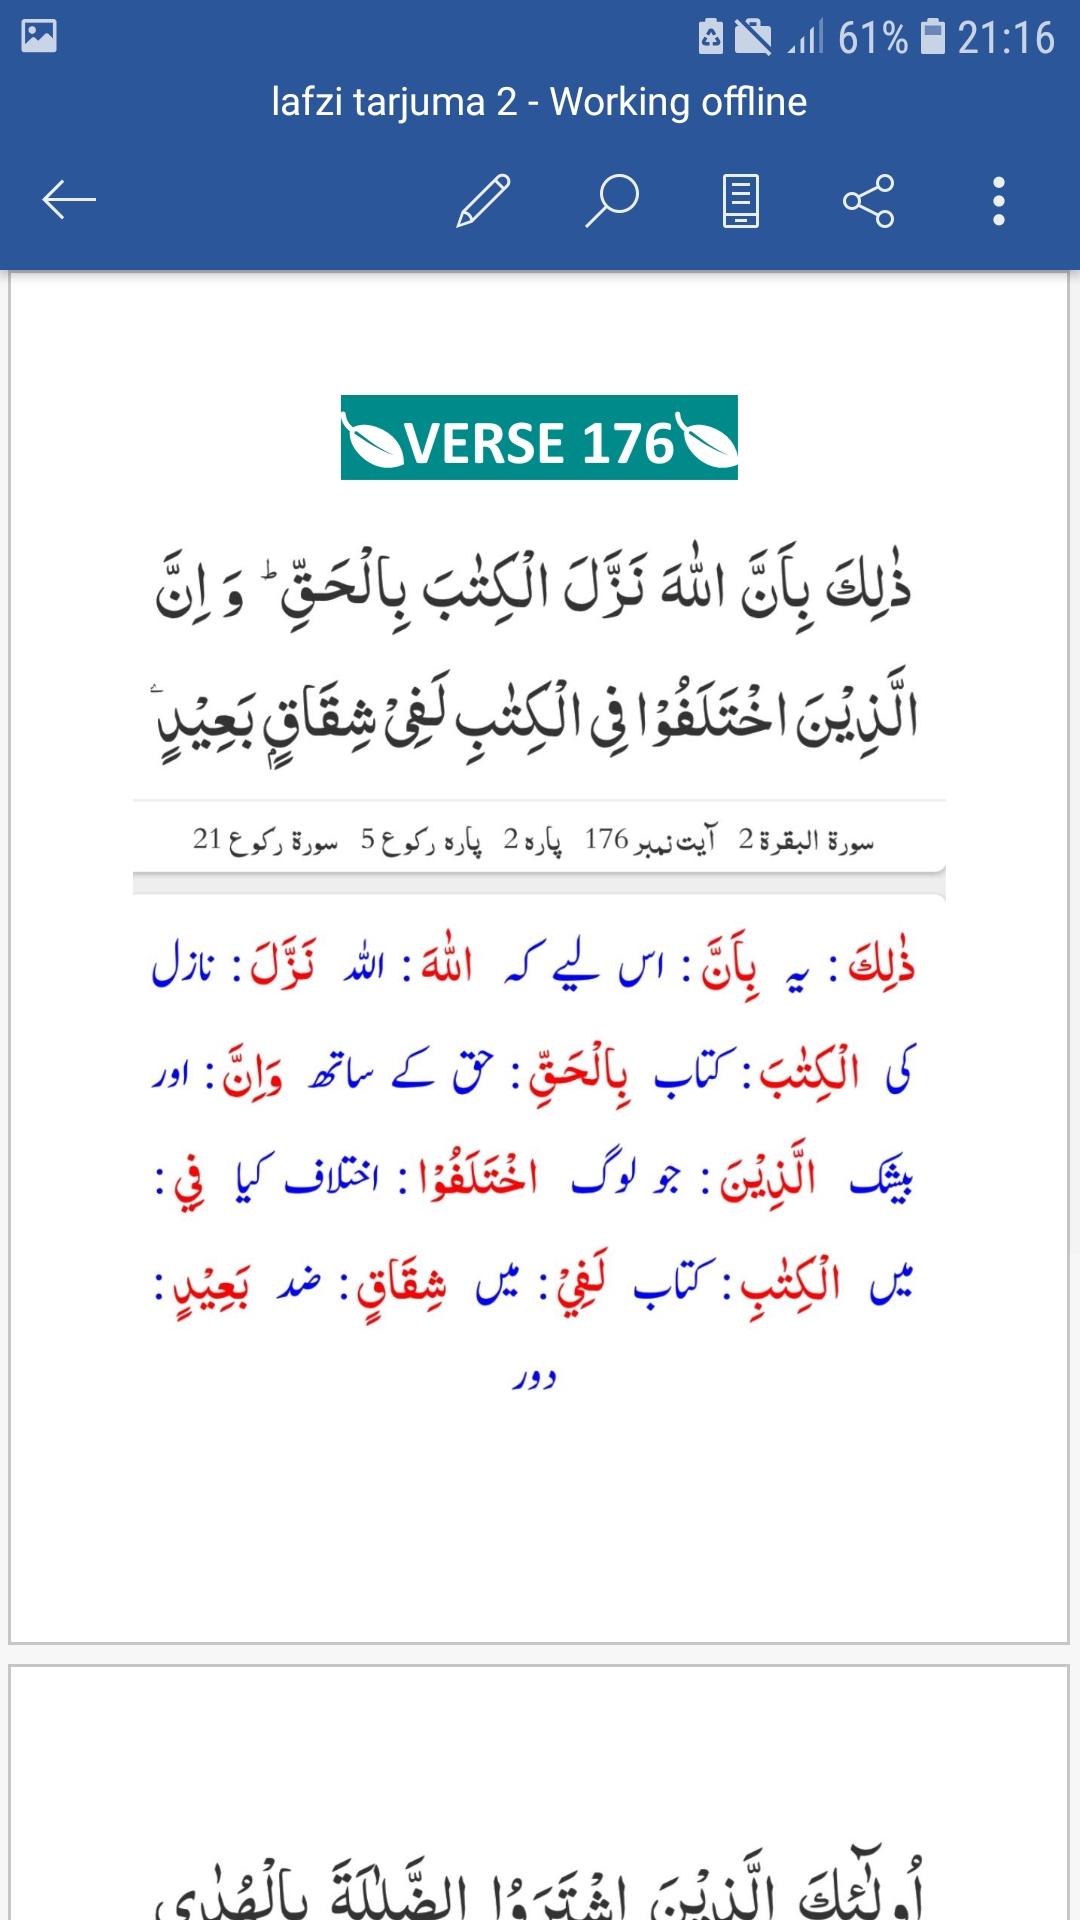 61% 21:16
lafzi tarjuma 2 - Working offline
VERSE 176
ذٰلِكَ بِاَنَّ اللّٰهَ نَزَّلَ الْكِتٰبَ بِالْحَقِّ ؕ وَ اِنَّ
الَّذِيْنَ اخْتَلَفُوْا فِى الْكِتٰبِ لَفِىْ شِقَاقٍۭ بَعِيْدٍ ۧ
سورۃ البقرۃ 2 آیت نمبر 176 پارہ 2 پارہ رکوع 5 سورۃ رکوع 21
ذٰلِكَ : یہ بِاَنَّ : اس لیے کہ اللّٰهَ : اللہ نَزَّلَ : نازل
کی الْكِتٰبَ : کتاب بِالْحَقِّ : حق کے ساتھ وَاِنَّ : اور
بیشک الَّذِيْنَ : جو لوگ اخْتَلَفُوْا : اختلاف کیا فِي :
میں الْكِتٰبِ : کتاب لَفِيْ : میں شِقَاقٍ : ضد بَعِيْدٍ :
دور
اُولٰٓئِكَ الَّذِيْنَ اشْتَرَوُا الضَّلٰلَةَ بِالْهُدٰى